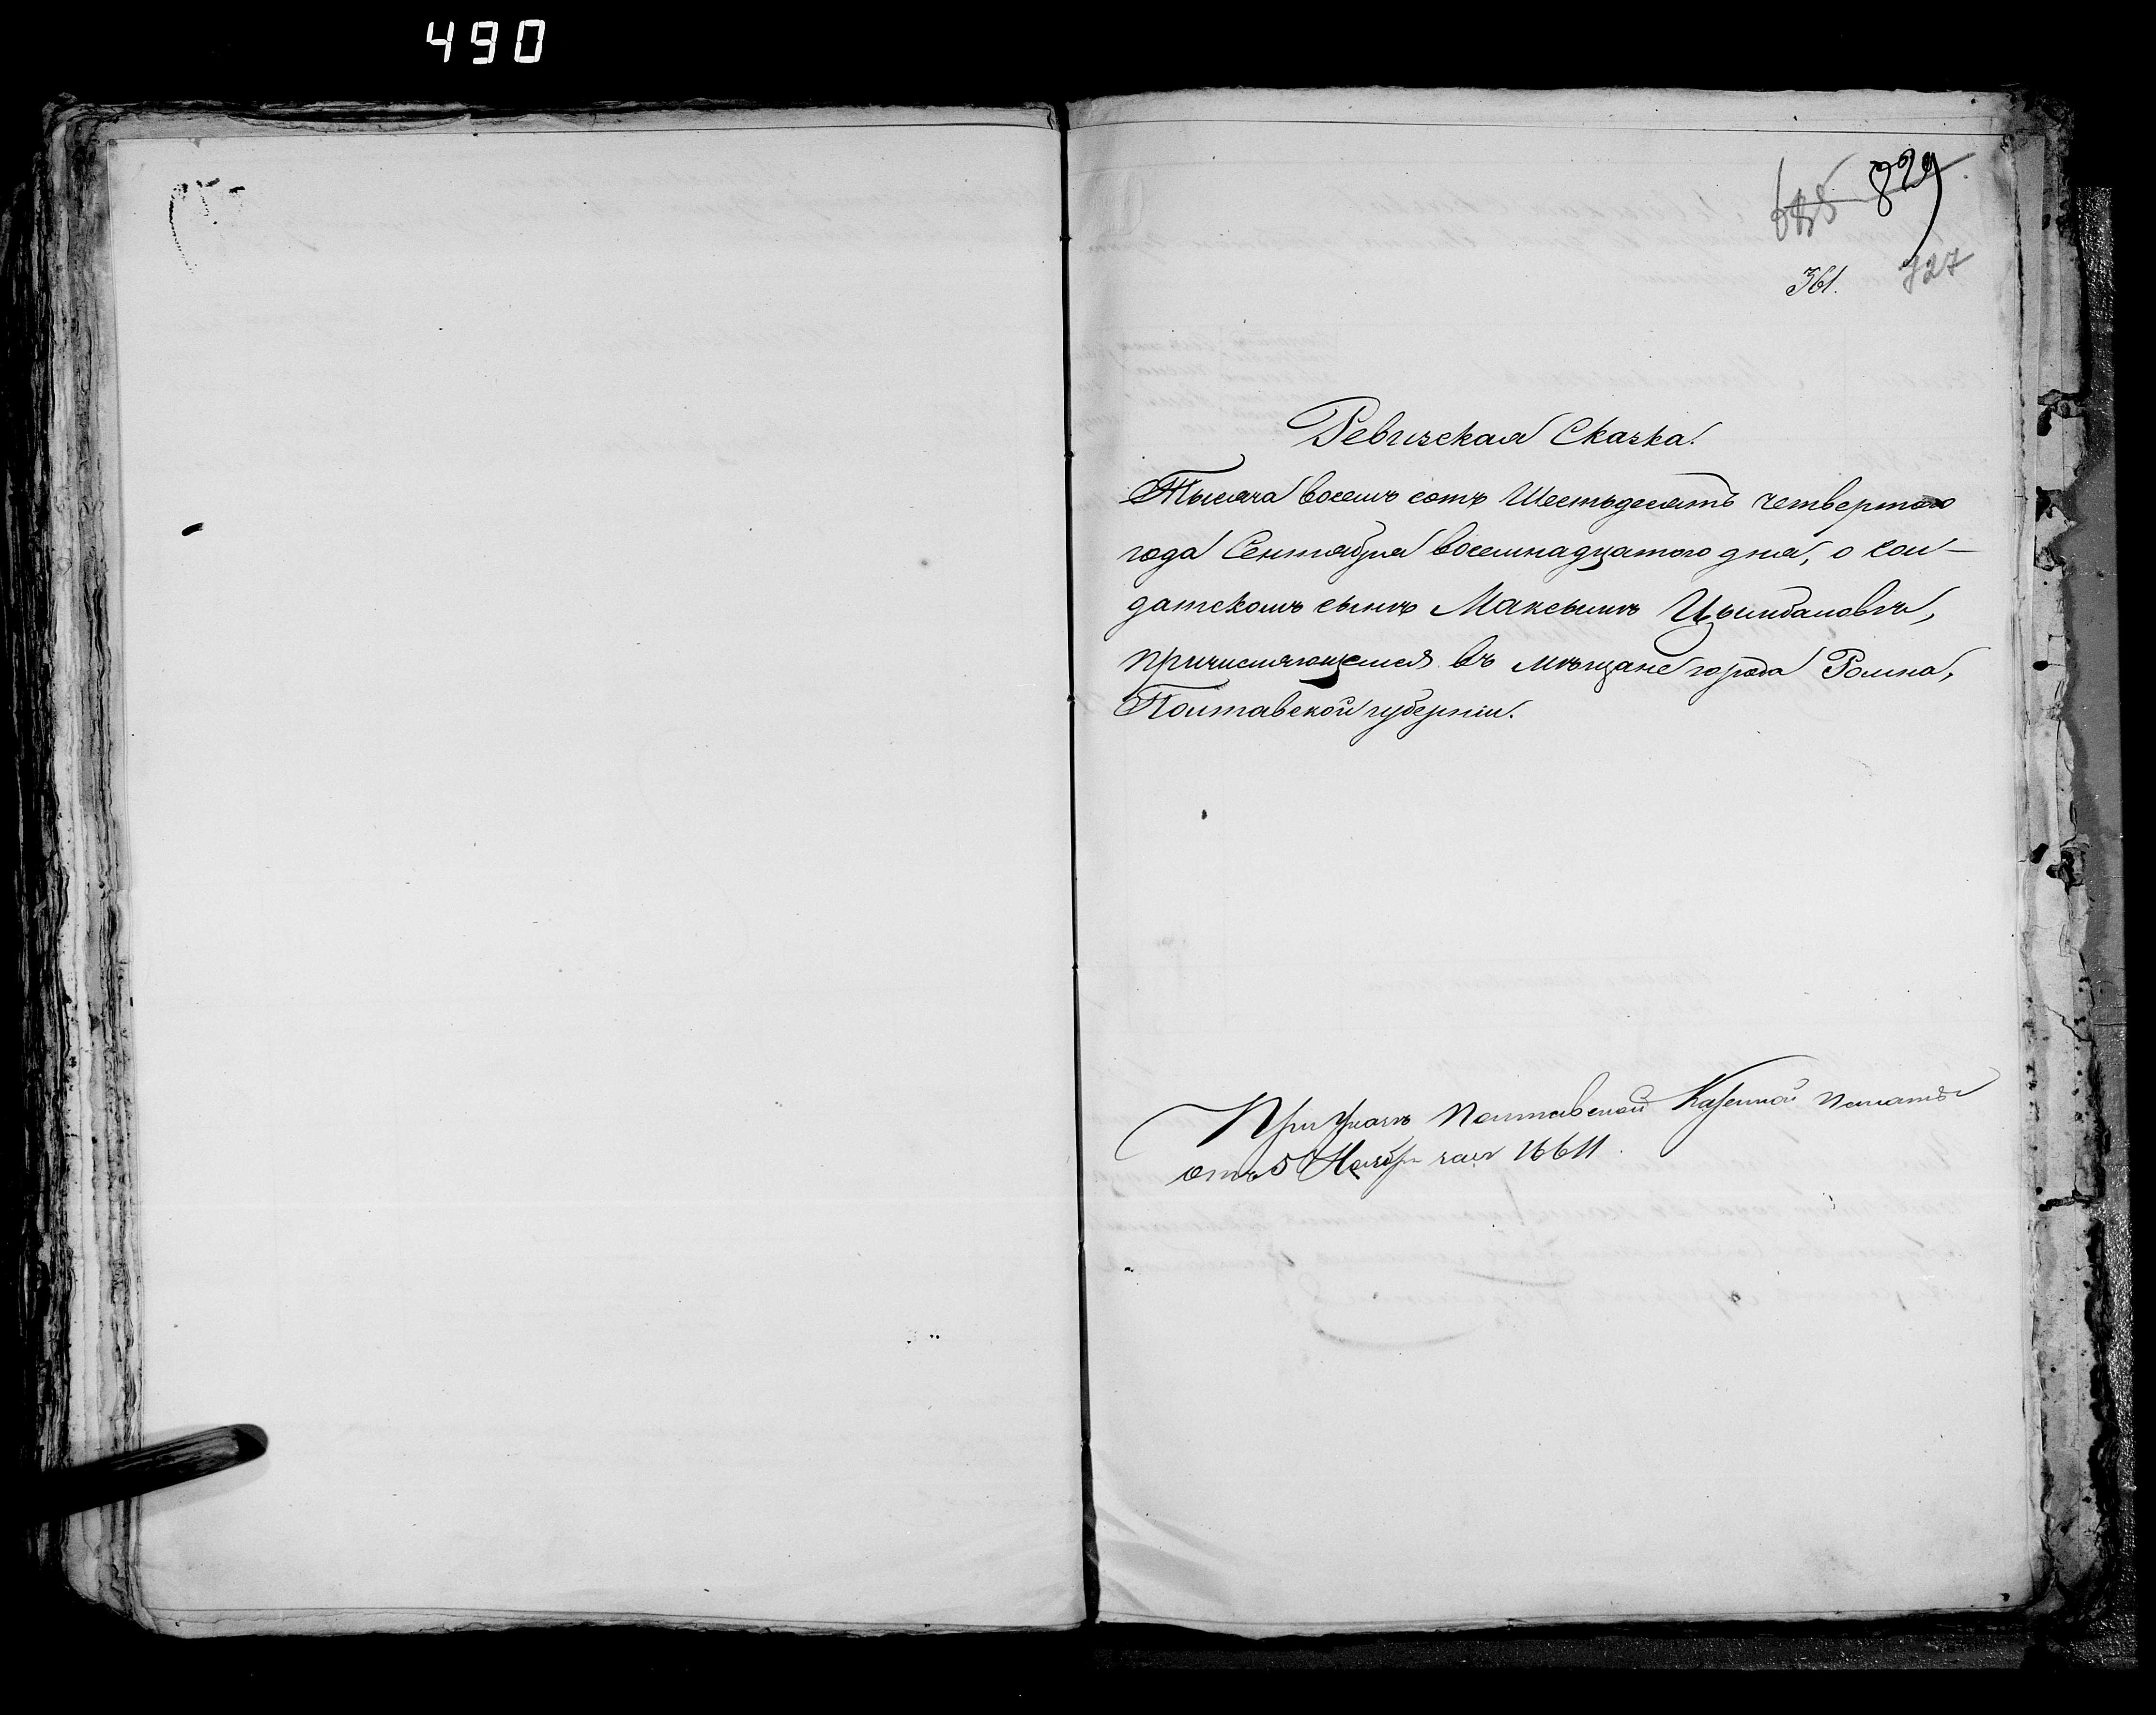 490
685 829
361. 727
Ревизская Сказка.
Тысяча восемь сотъ Шестьдесятъ четвертаго
года Сентября восемнадцатого дня, о сол-
датскомъ сынѣ Максымѣ Цымбаловѣ,
причисляющемся въ мѣщане города Ромна,
Полтавской губерніи.
При Указѣ Полтавской Казенной Палаты
отъ 5 Ноябр 16611